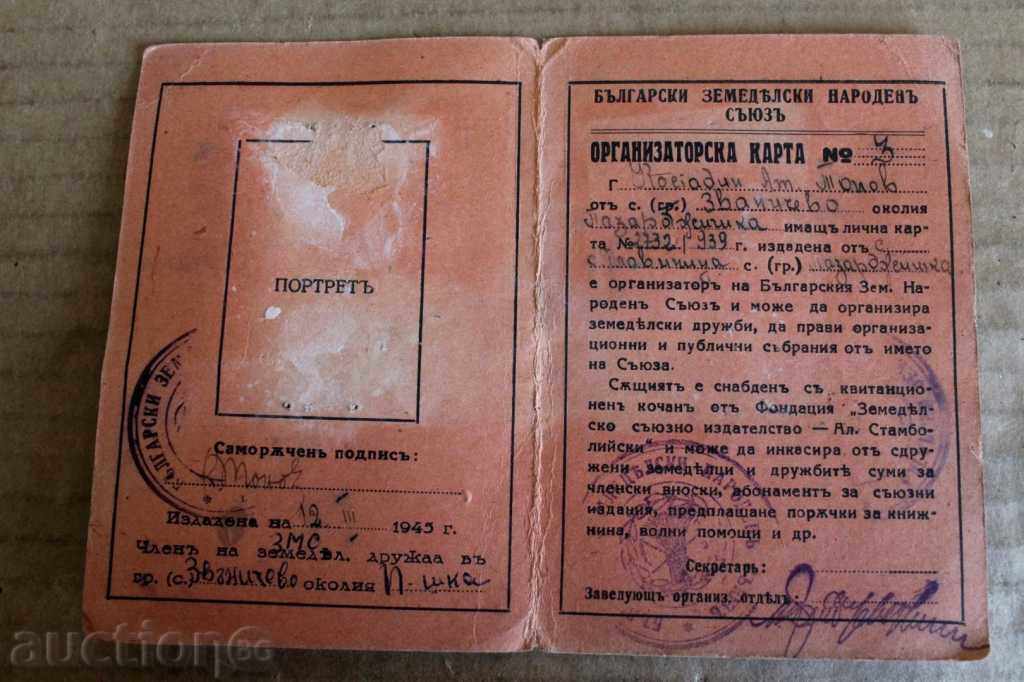 ПОРТРЕТЪ
Саморѫченъ подписъ:
Издадена на 12 III 1945 г.
ЗМС
Членъ на земедѣл. дружба въ
гр. (с.) Звъничево околия П-шка
БЪЛГАРСКИ ЗЕМЕДѢЛСКИ НАРОДЕНЪ
СЪЮЗЪ
ОРГАНИЗАТОРСКА КАРТА № 3
Г Костадин Ат. Попов
отъ с. (гр.) Званичево околия
Пазарджишка имащъ лична кар-
та № 2732/939 г. издадена отъ с.
с. Главиница с. (гр.) Пазарджишка
е организаторъ на Българския Зем. На-
роденъ Съюзъ и може да организира
земедѣлски дружби, да прави организа-
ционни и публични събрания отъ името
на Съюза.
Сѫщиятъ е снабденъ съ квитанцио-
ненъ кочанъ отъ Фондация „Земедѣл-
ско съюзно издателство — Ал. Стамбо-
лийски“ и може да инкасира отъ сдру-
жени земедѣлци и дружбитѣ суми за
членски вноски, абонаментъ за съюзни
издания, предплащане порѫчки за книж-
нина, волни помощи и др.
Секретарь:
Завеующъ организ. отдѣлъ:
auction.bg